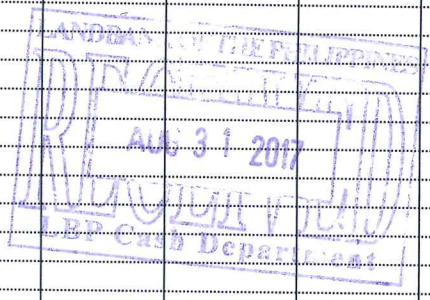 LANDBANK OF THE PHILIPPINES
RECEIVED
AUG 31 2017
LBP Cash Department